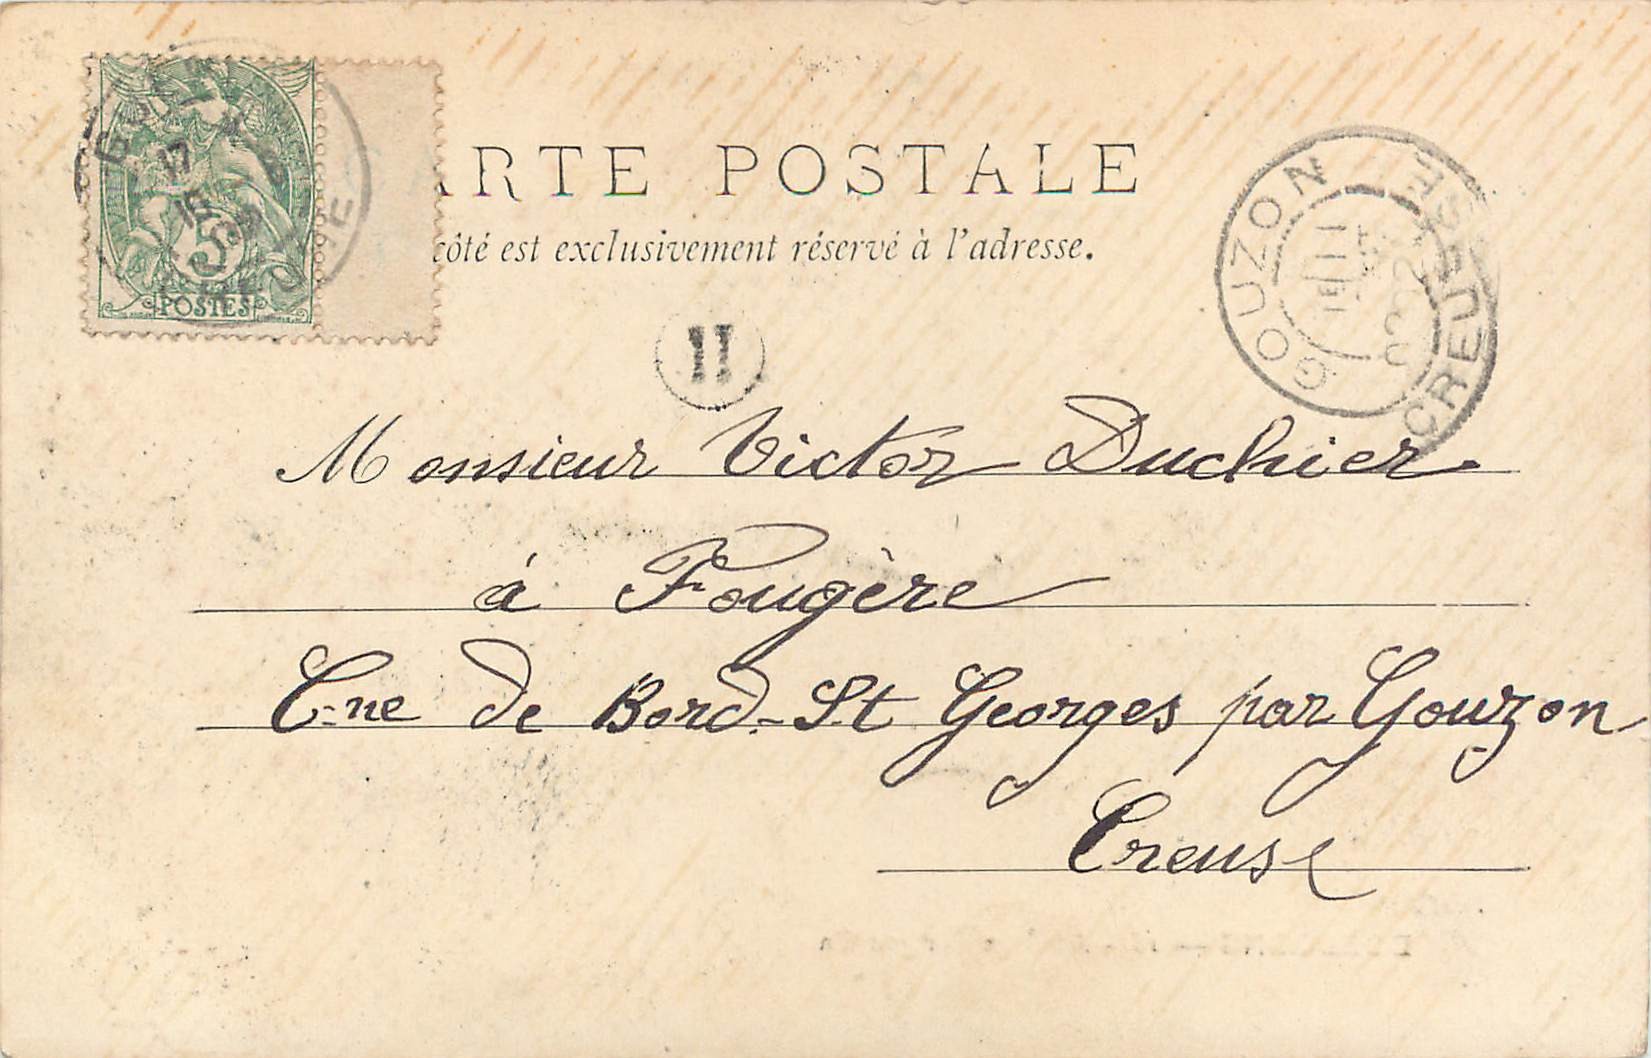 ARTE POSTALE
côté est exclusivement réservé à l'adresse.
5
POSTES
GOUZON
CREUSE
11
Monsieur Victor Duchier
à Fougère
C-ne de Bord-St Georges par Gouzon
Creuse